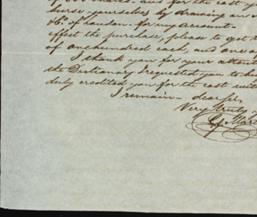 and for the cost
burse yourself by drawing on
of London for my account
effect the purchase, please to get
of one hundred each, and one
I thank you for your
the Dictionary I requested you to
duly credited you for the cost
I remain dear Sir,
Very truly